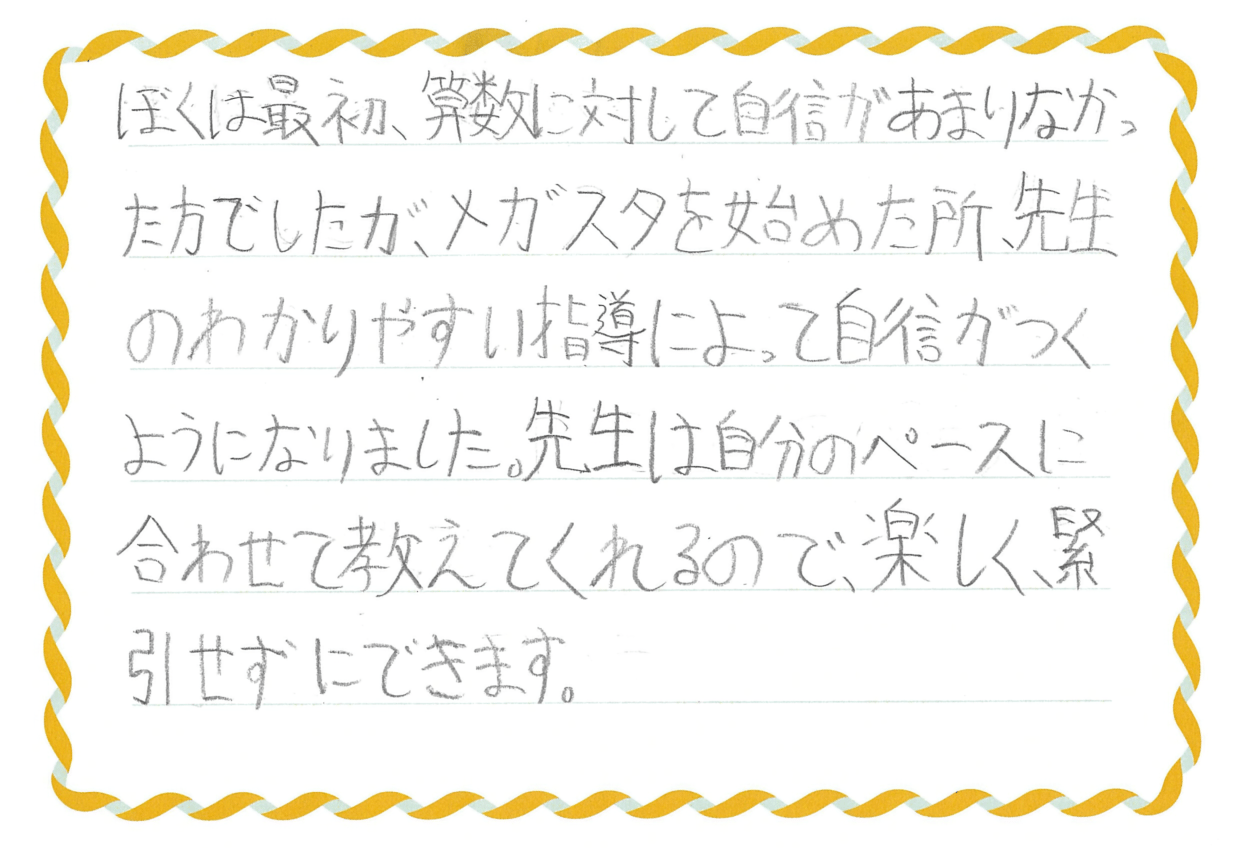 ぼくは最初、算数に対して自信があまりなかっ
た方でしたが、メガスタを始めた所、先生
のわかりやすい指導によって自信がつく
ようになりました。先生は自分のペースに
合わせて教えてくれるので、楽しく、緊
引せずにできます。